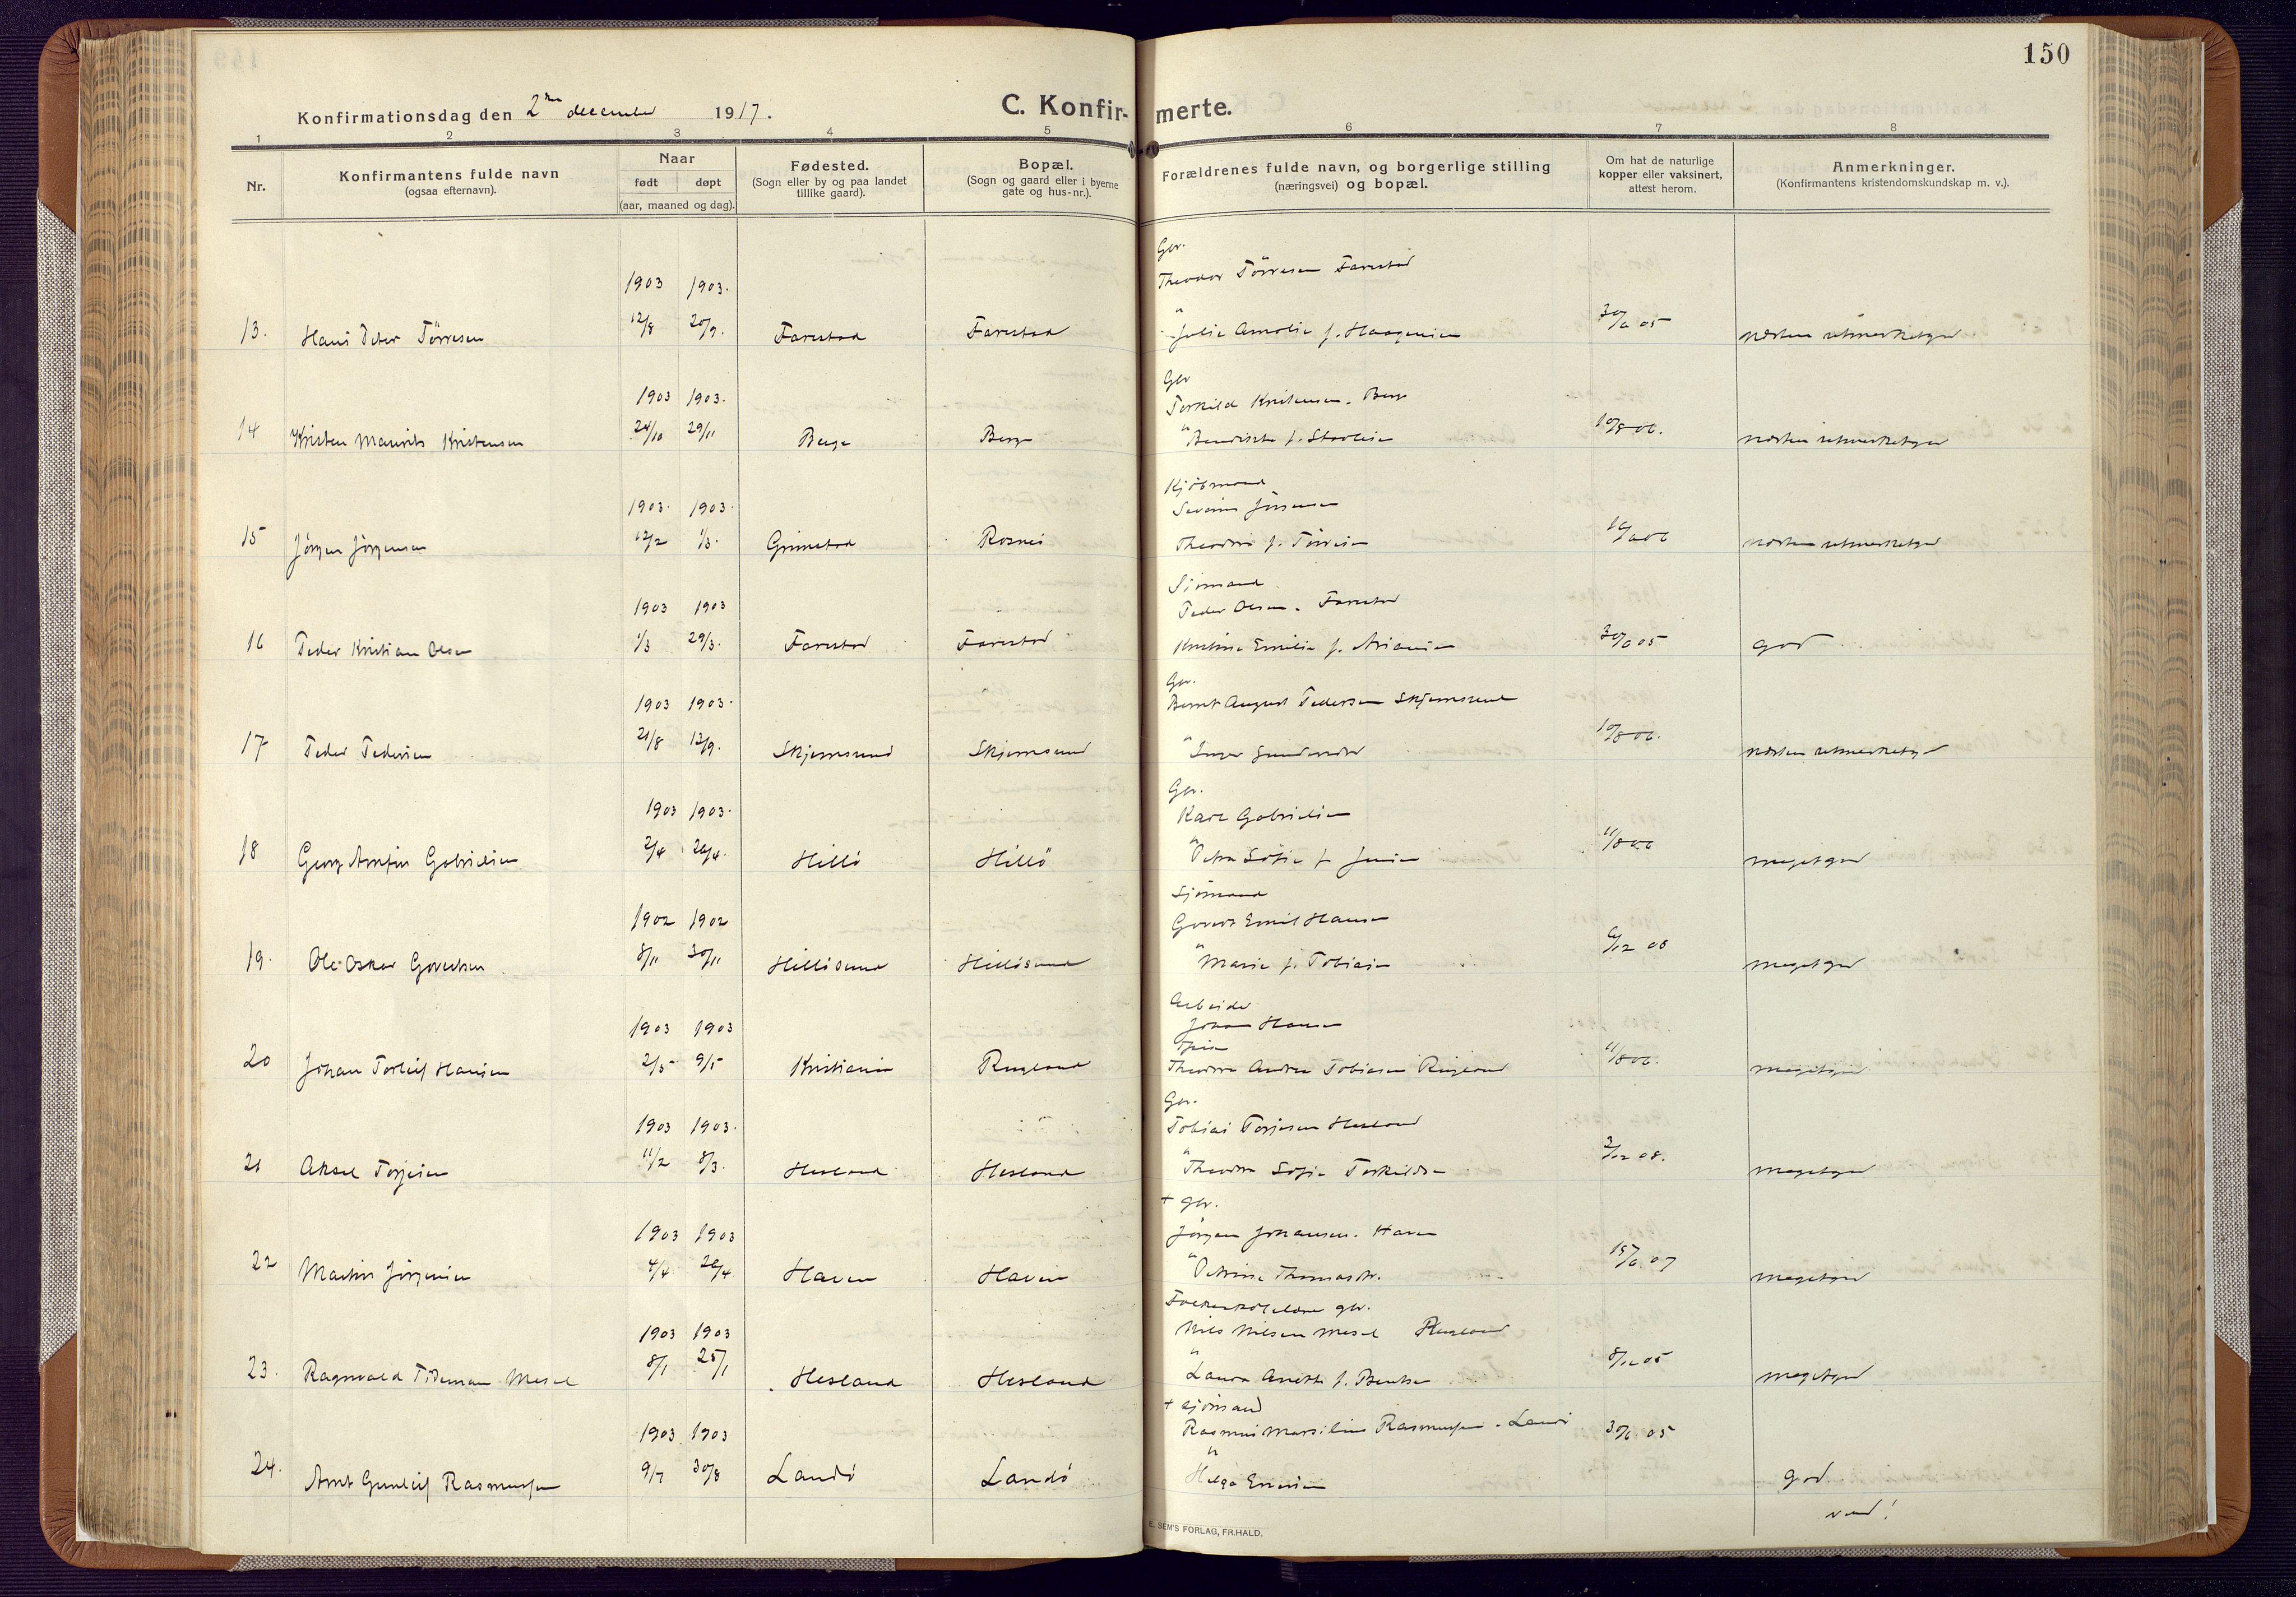 150
Konfirmationsdag den 2den december 1917.
C. Konfir-merte.
1 2 3 4 5 6 7 8
Nr.
Konfirmantens fulde navn
(ogsaa efternavn).
Naar
født døpt
(aar, maaned og dag).
Fødested.
(Sogn eller by og paa landet
tillike gaard).
Bopæl.
(Sogn og gaard eller i byerne
gate og hus-nr.).
Forældrenes fulde navn, og borgerlige stilling
(næringsvei) og bopæl.
Om hat de naturlige
kopper eller vaksinert,
attest herom.
Anmerkninger.
(Konfirmantens kristendomskundskap m. v.).
Gbr.
Theodor Törresen Farestad
1903 1903.
13. Hans Peder Törresen 12/8 20/9. Farestad Farestad Julie Amalie f. 30/6 05 næsten utmerketgod
Gbr
1903 1903. Torkild Kristensen. Berge
14 Kristen Maurits Kristensen 24/10 29/11 Berge Berge f. 10/8 06. næsten utmerketgod
Kjöbmand
1903. 1903. Severin Jörgensen
15 Jörgen Jörgensen 12/2 1/3. Grimstad Rosnes Theodora f. Törresen næsten utmerketgod
Sjömand
1903 1903 Peder Olsen. Farestad
16 Peder Kristian Olsen 1/3 29/3. Farestad Farestad Kristine Emilie f. 30/6 05 god
Gbr.
1903 1903. Bernt August Pedersen Skjernsund
17 Peder Pedersen 21/8 13/9. Skjernsund Skjernsund " Inger 10/8 06. næsten utmerketgod
Gbr.
1903 1903. Karl Gabrielsen
18 Georg Arnfin Gabrielsen 2/4 26/4. Hillö Hillö " Petra Sofie f. Jensen 11/8 06 megetgod
Sjömand
1902 1902 Govert Emil Hansen
19. Ole Oskar Govertsen 8/11 30/11 Hillösund Hillösund " Marie f. Tobiasen 6/12 08 megetgod
Arbeider
1903 1903 Johan Hansen
20 Johan Torleif Hansen 2/3 9/5 Kristiania Ringland Theodora Andrea Tobiasen Ringland 11/8 06. megetgod
Gbr.
1903 1903. Tobias Torjesen Hesland
21 Aksel Torjesen 11/2 8/3. Hesland Hesland " Theodora Sofie Torkildsen 2/12 08. megetgod
+ gbr.
1903 1903 Jörgen Johansen. Haven
22 Martin Jörgensen 4/4 26/4. Haven Haven " Petrine Thomasdtr. 15/6 07 megetgod
gbr.
1903 1903 Nils Nilsen Mesel Hesland
23. Ragnvald Tideman Mesel 8/1 25/1 Hesland Hesland " Laura Anette f. Bentsen 8/12 05 megetgod
+ sjömand
1903 1903 Rasmus Marsilius Rasmussen. Landö 30/6 05
24. Arnt Gunleif Rasmussen 9/7 30/8 Landö Landö " Helga god.
vend!
E. SEM'S FORLAG, FR.HALD.